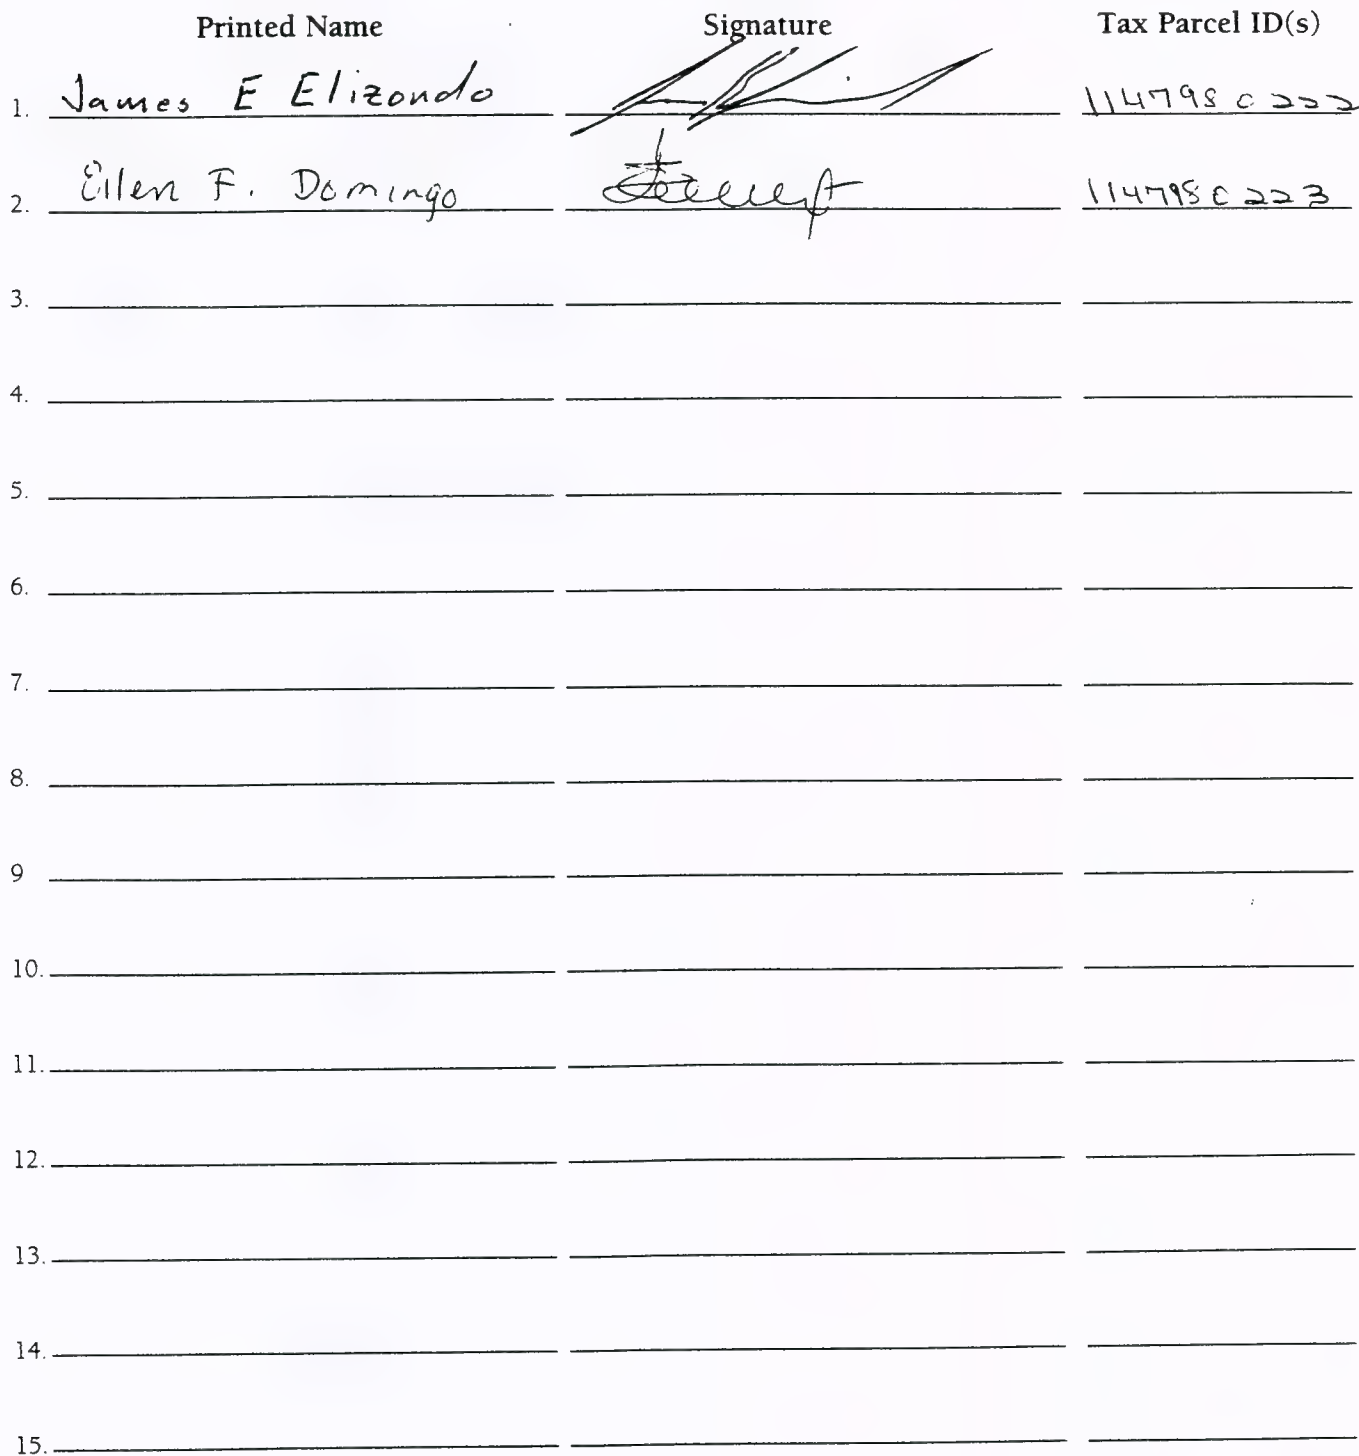 Printed Name Signature Tax Parcel ID(s)
1. James E Elizondo 1147980222
2. Eilen F. Domingo 1147980223
3.
4.
5.
6.
7.
8.
9
10.
11.
12.
13.
14.
15.